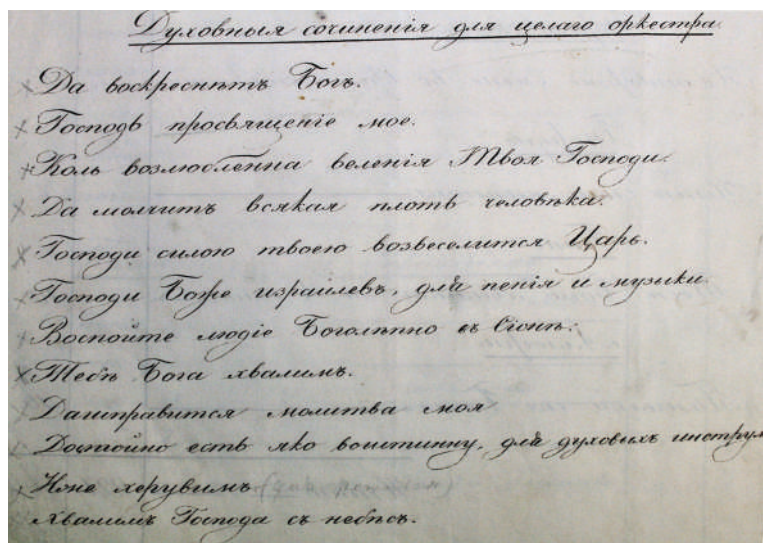 Духовныя сочиненія для целаго оркестра.
Да воскреснѣтъ Богъ.
Господь просвященіе мое.
Коль возлюбленна веленія Твоя Господи.
Да молчитъ всякая плоть человѣка.
Господи силою твоею возвеселится Царь.
Господи Боже израилевъ, для пенія и музыки.
Воспойте людіе Боголѣпно въ Сіонѣ.
Тебѣ Бога хвалимъ.
Даисправится молитва моя
Достойно есть яко воистинну, для духовыхъ инструм
Иже херувимъ
Хвалимъ Господа съ небѣсъ.